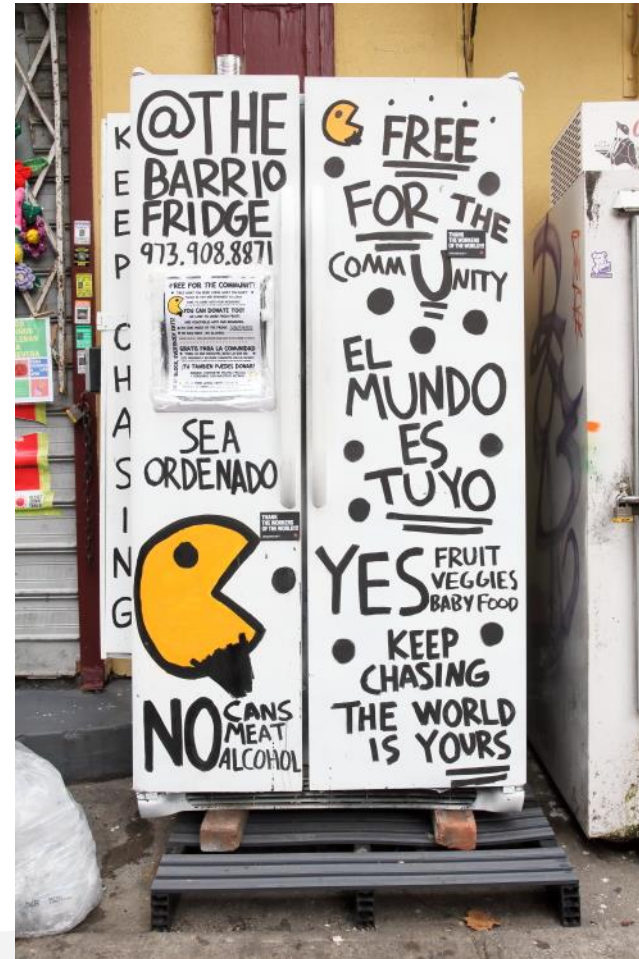 KEEP CHASING
@THE
BARRIO
FRIDGE
973.908.8871
FREE FOR THE COMMUNITY
YOU CAN DONATE TOO!
GRATIS PARA LA COMUNIDAD
¡TU TAMBIEN PUEDES DONAR!
SEA
ORDENADO
THANK
THE WORKERS
OF THE WORLD!!!
NO CANS
MEAT
ALCOHOL
FREE
FOR THE
COMMUNITY
THANK
THE WORKERS
OF THE WORLD!!!
EL
MUNDO
ES
TUYO
YES FRUIT
VEGGIES
BABY FOOD
KEEP
CHASING
THE WORLD
IS YOURS